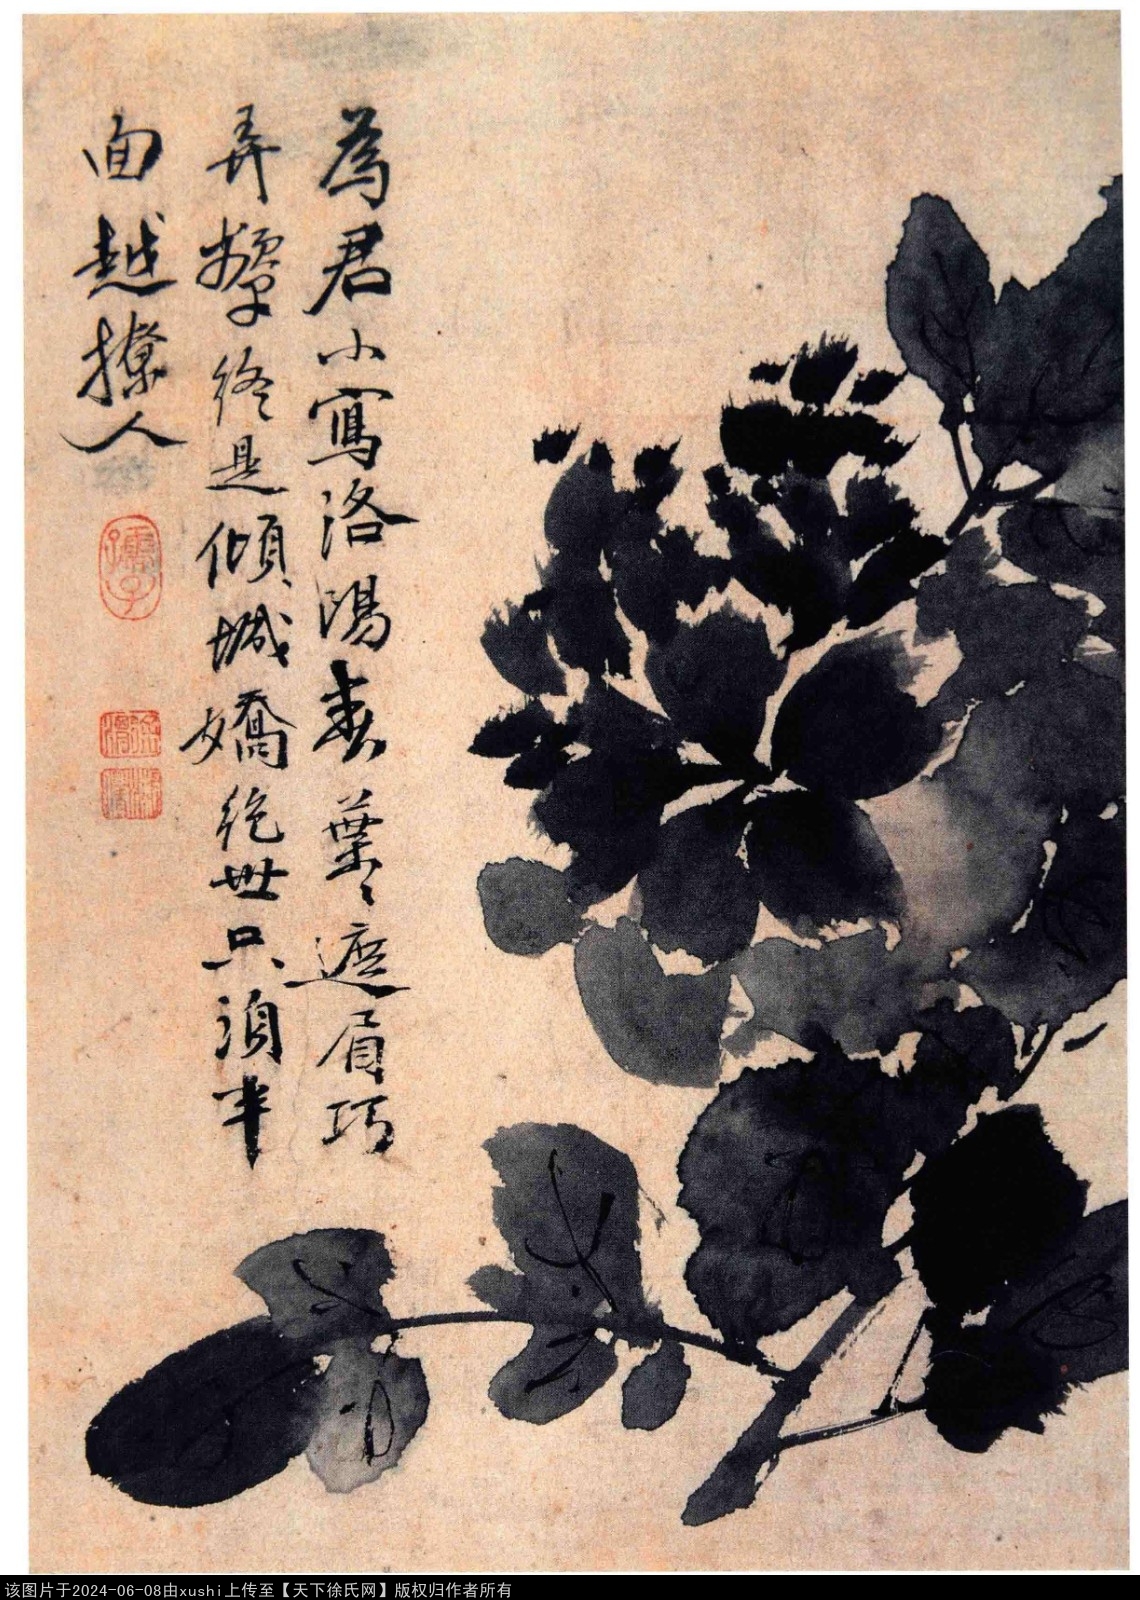 為君小寫洛陽春葉〻遮眉巧
弄顰終是傾城嬌絕世只須半
面越撩人
該图片于2024-06-08由xushi上传至【天下徐氏网】版权归作者所有